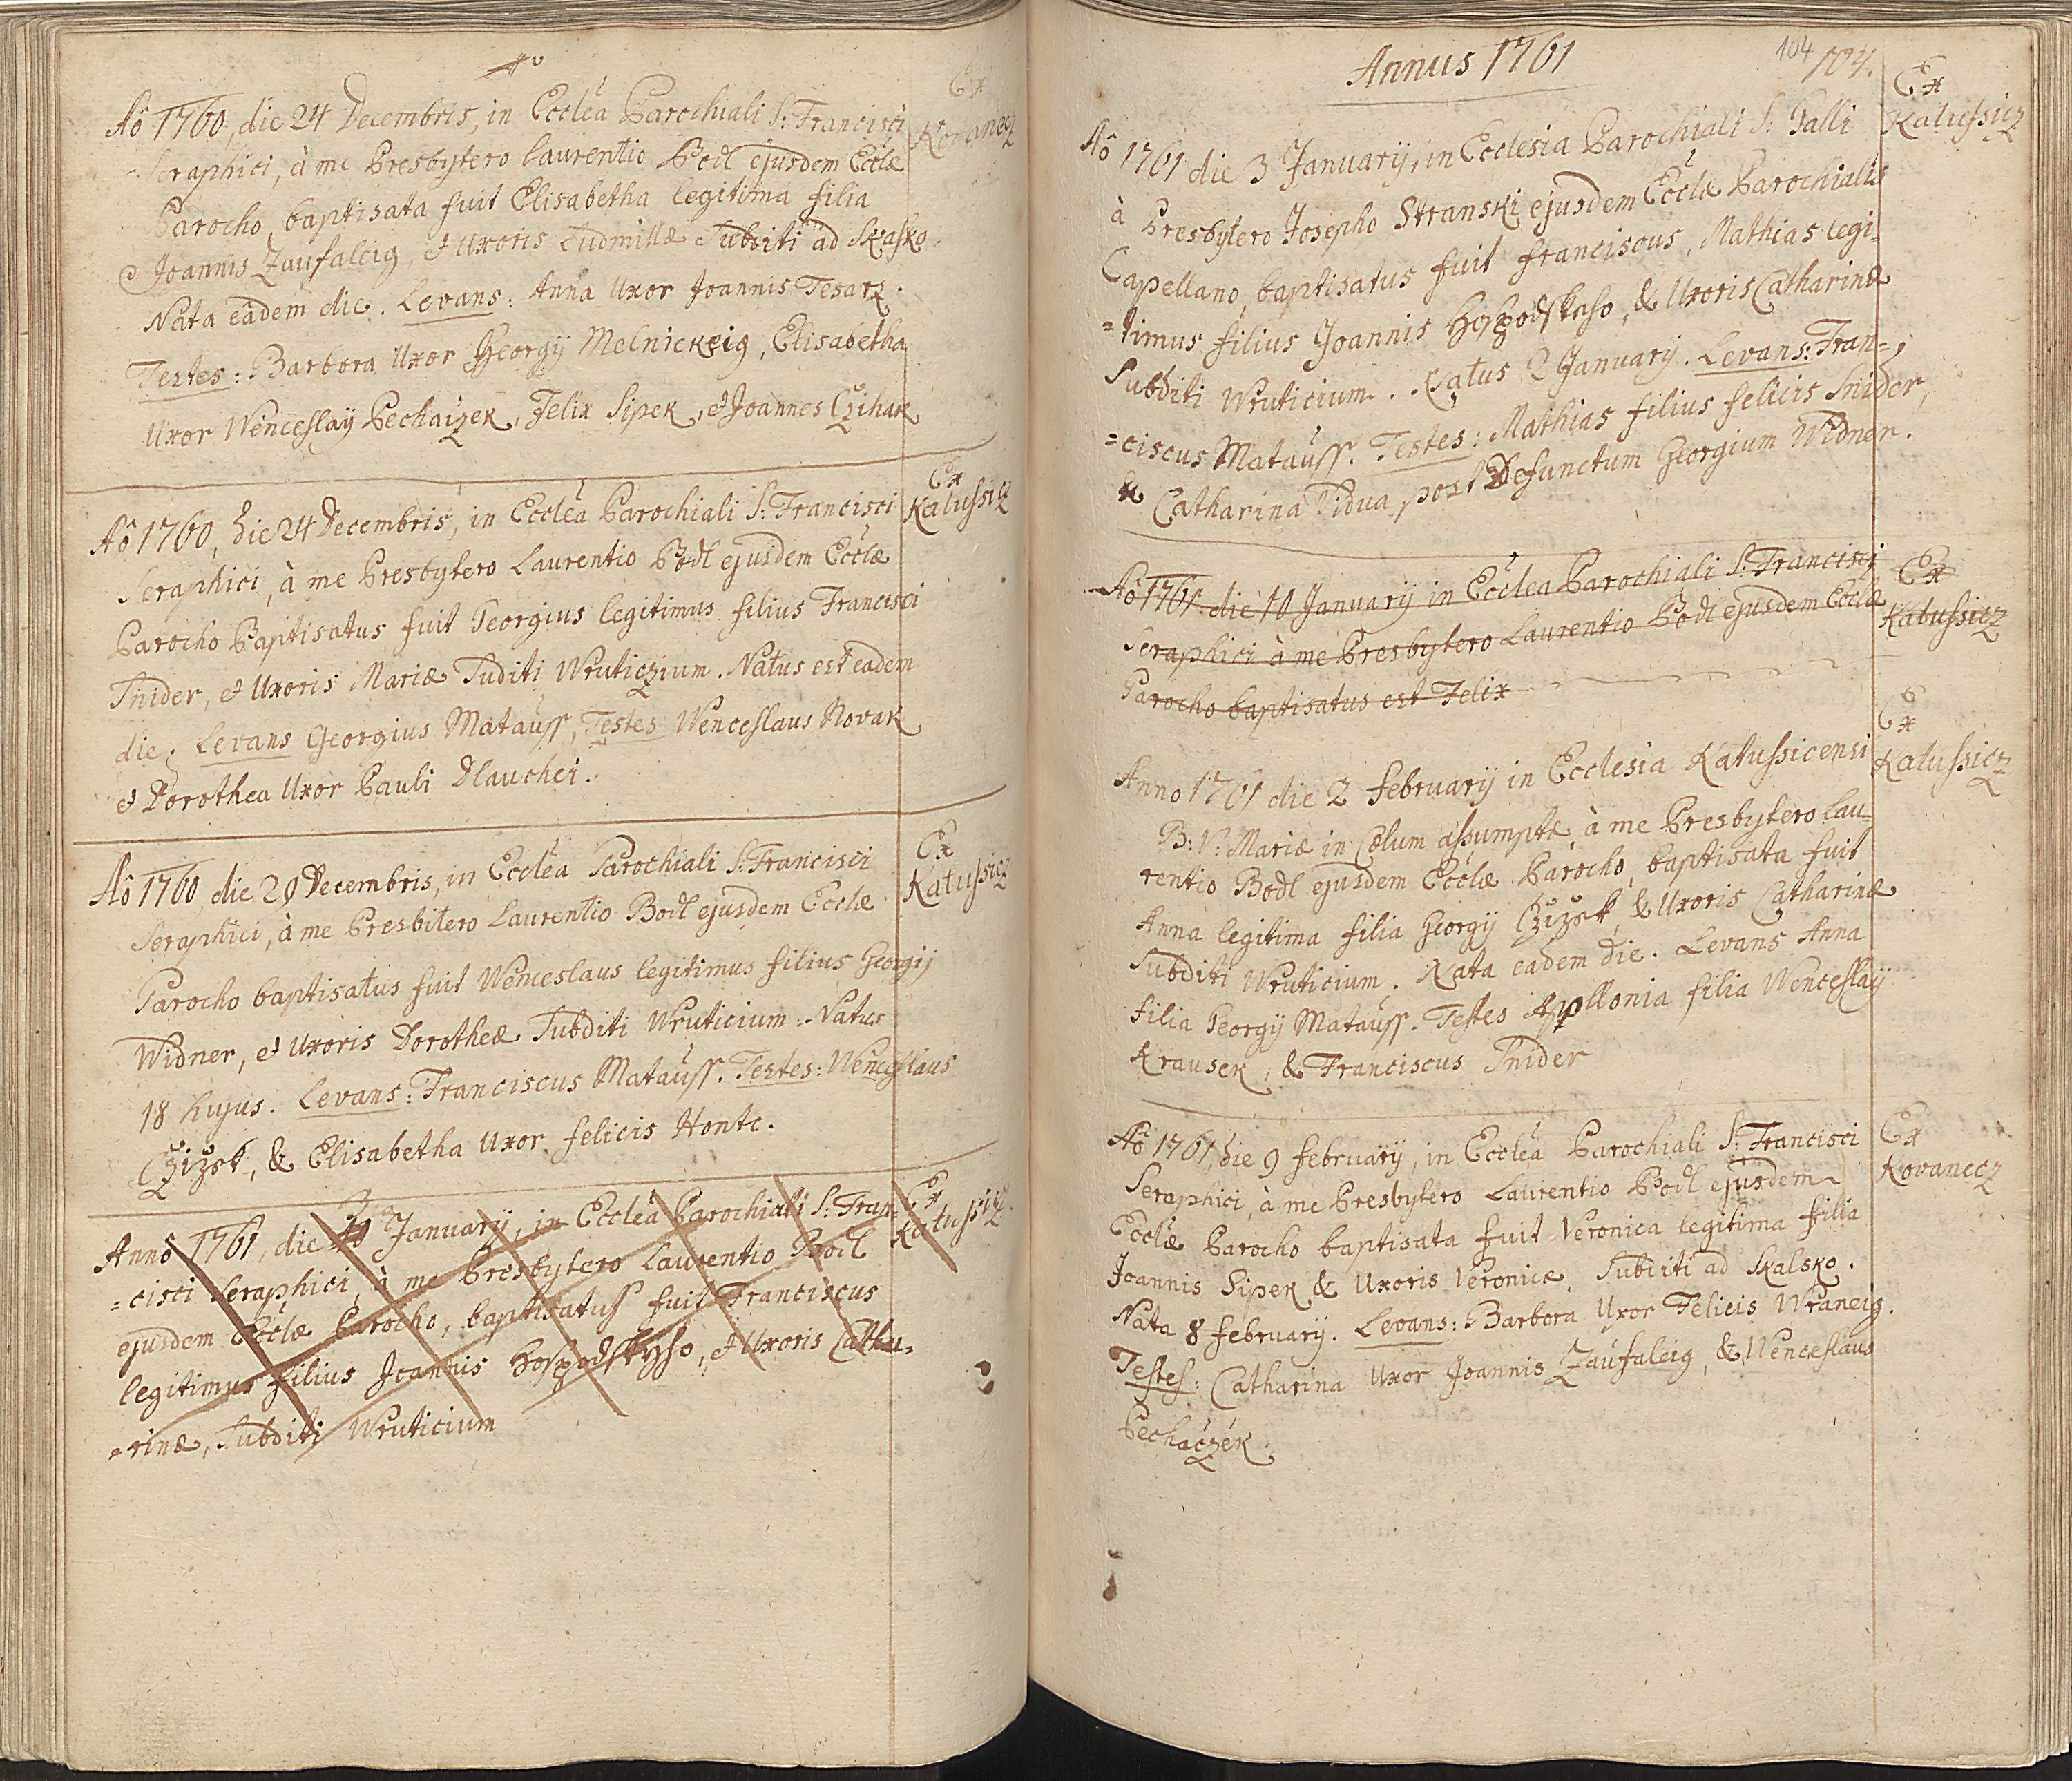 Aô 1760, die 24 Decembris, in Ecclêa Parochiali S: Francisci
Ex
Kovanecz
Seraphici, à me Presbytero Laurentio Podl ejusdem Ecclæ
Parocho, baptisata fuit Elisabetha legitima filia
Joannis Zaufalcig, et Uxoris Ludmillæ Subditi ad Skalsko.
Nata eâdem die. Levans: Anna Uxor Joannis Tesarz.
Testes: Barbora Uxor Georgij Melnickeig, Elisabetha
Uxor Wenceslaij Pechaczek, Felix Sipek, et Joannes Czihak
Aô 1760, die 24 Decembris, in Ecclêa Parochiali S: Francisci
Ex
Katussicz
Seraphici, à me Presbytero Laurentio Podl ejusdem Ecclæ
Parocho Baptisatus fuit Georgius legitimus filius Francisci
Snider, et Uxoris Mariæ Suditi Wruticzium. Natus est eadem
die. Levans Georgius Matauss, Testes Wenceslaus Novak
et Dorothea Uxor Pauli Dlauchei.
Aô 1760, die 29 Decembris, in Ecclêa Parochiali S: Francisci
Ex
Katussicz
Seraphici, à me Presbitero Laurentio Podl ejusdem Ecclæ
Parocho baptisatus fuit Wenceslaus legitimus filius Georgij
Widner, et Uxoris Dorotheæ Subditi Wruticium. Natus
18 hujus. Levans: Franciscus Matauss. Testes: Wenceslaus
Czizek, & Elisabetha Uxor felicis Honte.
Anno 1761, die Januarij, in Ecclêa Parochiali S: Fran=
Ex
Katussicz
=cisci Seraphici, à me Presbytero Laurentio Podl
ejusdem Ecclæ Parocho, baptisatus fuit Franciscus
legitimus filius Joannis Hospodskyho, et Uxoris Catha=
=rinæ, Subditi Wruticium
Annus 1761
104 104.
Ex
Katussicz
Aô 1761 die 3 Januarij, in Ecclesia Parochiali S: Galli
à Presbytero Josepho Stranski ejusdem Ecclæ Parochialis
Capellano, baptisatus fuit franciscus, Mathias legi=
=timus filius Joannis Hospodskeho, & Uxoris Catharinæ
Subditi Wruticium. Natus 2 Januarij. Levans: Fran=
=ciscus Matauss. Testes: Mathias filius felicis Snider,
& Catharina Vidua post Defunctum Georgium Widner.
Aô 1761 die 10 Januarij in Ecclea Parochiali S: Francisci
Ex
Katussicz
Seraphici à me Presbytero Laurentio Podl ejusdem Ecclæ
Parocho baptisatus est Felix
Ex
Katussicz
Anno 1761 die 2 februarij in Ecclesia Katussicensi
B: V: Mariæ in Cœlum assumptæ, à me Presbytero Lau=
rentio Podl ejusdem Ecclæ Parocho, baptisata fuit
Anna legitima filia Georgij Czizek, & Uxoris Catharinæ
Subditi Wruticium. Nata eâdem die. Levans Anna
filia Georgij Matauss. Testes Apollonia filia Wenceslaij
Krausek, & Franciscus Snider
Aô 1761, die 9 februarij, in Ecclêa Parochiali S: Francisci
Ex
Kovanecz
Seraphici, à me Presbytero Laurentio Podl ejusdem
Ecclæ Parocho baptisata fuit Veronica legitima filia
Joannis Sipek & Uxoris Veronicæ, Subditi ad Skalsko.
Nata 8 februarij. Levans: Barbora Uxor Felicis Wraneig.
Testes: Catharina Uxor Joannis Zaufalcig, & Wenceslaus
Pechaczek.